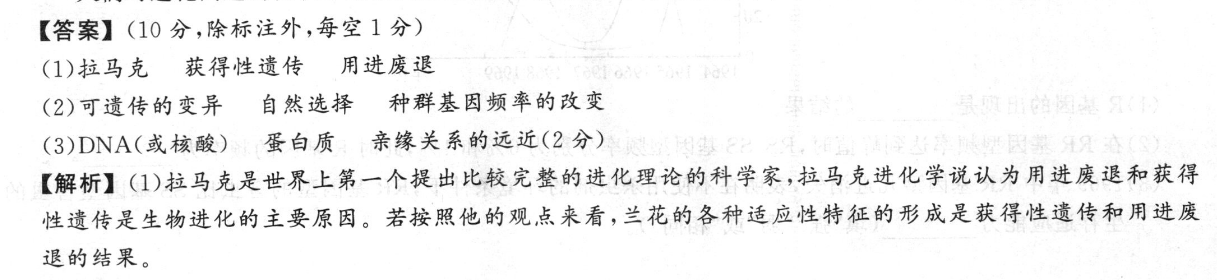 【答案】(10分,除标注外,每空1分)
(1)拉马克 获得性遗传 用进废退
(2)可遗传的变异 自然选择 种群基因频率的改变
(3)DNA(或核酸) 蛋白质 亲缘关系的远近(2分)
【解析】(1)拉马克是世界上第一个提出比较完整的进化理论的科学家,拉马克进化学说认为用进废退和获得
性遗传是生物进化的主要原因。若按照他的观点来看,兰花的各种适应性特征的形成是获得性遗传和用进废
退的结果。